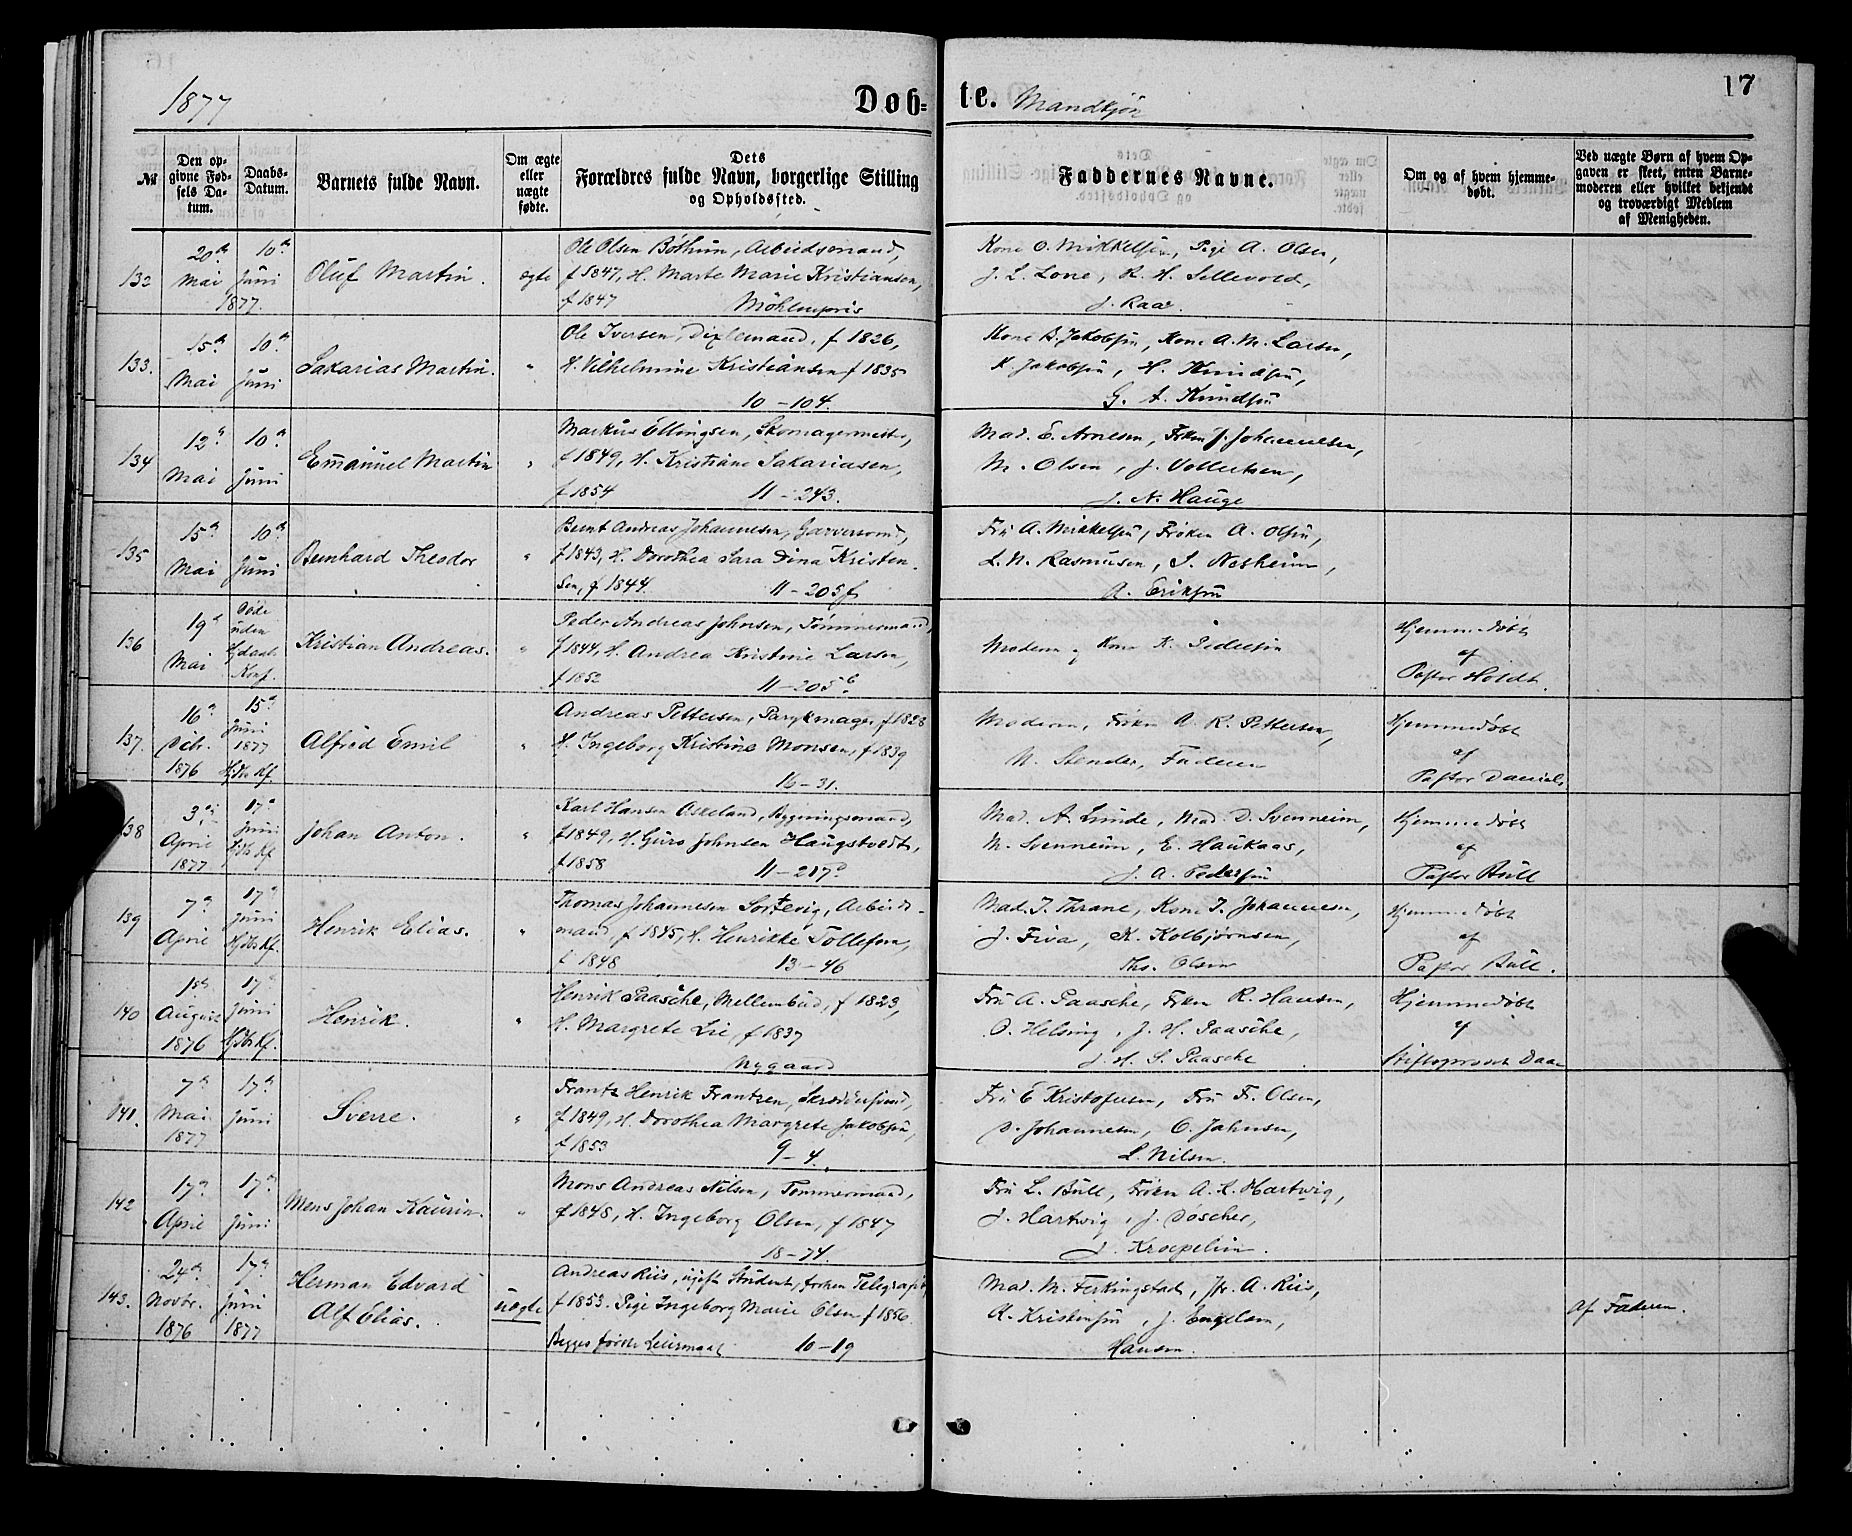 1877
Døb-
te.
Mandkjøn
17
№
Den op-
givne Fød-
sels Da-
tum.
Daabs-
Datum.
Barnets fulde Navn.
Om ægte
eller
uægte
fødte.
Dets
Forældres fulde Navn, borgerlige Stilling
og Opholdssted.
Faddernes Navne.
Om og af hvem hjemme-
døbt.
Ved uægte Børn af hvem Op-
gaven er skeet, enten Barne-
moderen eller hvilket bekjendt
og troværdigt Medlem
af Menigheden.
132
20de
Mai
10de
Juni
1877.
Oluf Martin.
ægte
Ole Olsen Böthun, Arbeidsmand,
f 1847, H. Marte Marie Kristiansen,
f 1847 Möhlenpris
Kone O. Mikkelsen, Pige A. Olsen,
J. L. Lone, R. H. Sellevold,
J. Raae.
133.
15de
Mai
10de
Juni
Sakarias Martin.
"
Ole Iversen, Dixlemand, f 1826,
H. Vilhelmine Kristiansen f 1835
10-104.
Kone B. Jakobsen, Kone A. M. Larsen,
K. Jakobsen, H. Knudsen,
G. A. Knudsen
134
12te
Mai
10de
Juni
Emanuel Martin
"
Markus Ellingsen, Skomagermester,
f 1849, H. Kristiane Sakariasen,
f 1854 11-243.
Mad. E. Arnesen, Frken J. Johannesen,
M. Olsen, J. Vollertsen,
J. N. Hauge
135
15de
Mai
10de
Juni
Bernhard Theodor
"
Bernt Andreas Johannesen, Garversvend,
f 1843, H. Dorothea Sara Dina Kristen-
sen, f 1844. 11-205f
Fru A. Mikkelsen, Frøken A. Olsen,
L. N. Rasmusen, S. Nesheim,
A. Eriksen
136
19de
Mai
Døde
uden
Hjdaabs
Konf.
Kristian Andreas.
"
Peder Andreas Johnsen, Tömmermand,
f 1844, H. Andrea Kristine Larsen,
f 1852 11-205b.
Moderen, Kone K. Pedersen
Hjemmedøbt
af
Pastor Holdt.
137.
16de
Debr.
1876
15de
Juni
1877
Hjdbs Kf.
Alfred Emil
"
Andreas Pettersen, Parykmager, f 1828
H. Ingeborg Kristine Monsen, f 1839
16-31.
Moderen, Frøken A. K. Pettersen,
N. Stender, Faderen
Hjemmedøbt
af
Pastor Daniels.
138
3die
April
1877
17de
Juni
Hjdbs Kf
Johan Anton.
"
Karl Hansen Askeland, Bygningsmand,
f 1849, H. Guro Johnsen Haugstvedt,
f 1858 11-217d
Mad. A. Lunde, Mad. D. Svenneim,
M. Svenneim, E. Haukaas,
J. A. Pedersen
Hjemmedøbt
af
Pastor Bull
139
7de
April
17de
Juni
Hjdbs Kf.
Henrik Elias.
"
Thomas Johannesen Sortevig, Arbeids-
mand, f 1845, H. Henrikke Tollefsen,
f 1848 13-46
Mad. J. Thrane, Kone J. Johannesen,
J. Fiva, K. Kolbjørnsen,
Ths. Olsen
Hjemmedøbt
af
Pastor Bull.
140
1ste
August
1876
17de
Juni
Hjdbs Kf.
Henrik.
"
Henrik Paasche, f 1823,
H. Margrete Lie, f 1837
Nygaard
Fru A. Paasche, Frken R. Hansen,
O. Helsing, J. H. Paasche,
J. H. S. Paasche
Hjemmedøbt
af
Stiftsprovst Daae
141.
7de
Mai
1877
17de
Juni
Sverre.
"
Frantz Henrik Frantzen, Skræddersvend,
f 1849, H. Dorothea Margrete Jakobsen,
f 1853 9-4.
Fru E Kristofersen, Fru Fr. Olsen,
D. Johannesen, C. Jahnsen,
L. Nilsen.
142
17de
April
17de
Juni
Mons Johan Kaurin.
"
Mons Andreas Nilsen, Tømmermand,
f 1848, H. Ingeborg Olsen, f 1847
18-74.
Fru L. Bull, Frøken A. L. Hartwig,
J. Hartwig, J. Döscher,
J. Kroepelin.
143.
24de
Novbr.
1876
17de
Juni
1877
Herman Edvard
Alf Elias.
uægte
Andreas Riis, ugift Student, forhen Telegrafist
f 1853. Pige Ingeborg Marie Olsen f 1856.
Begges første Leiermaal 10-19
Mad. M. Ferkingstad, Jfr. A. Riis,
A. Kristensen, J. Engelsen,
Hansen.
Af Faderen.